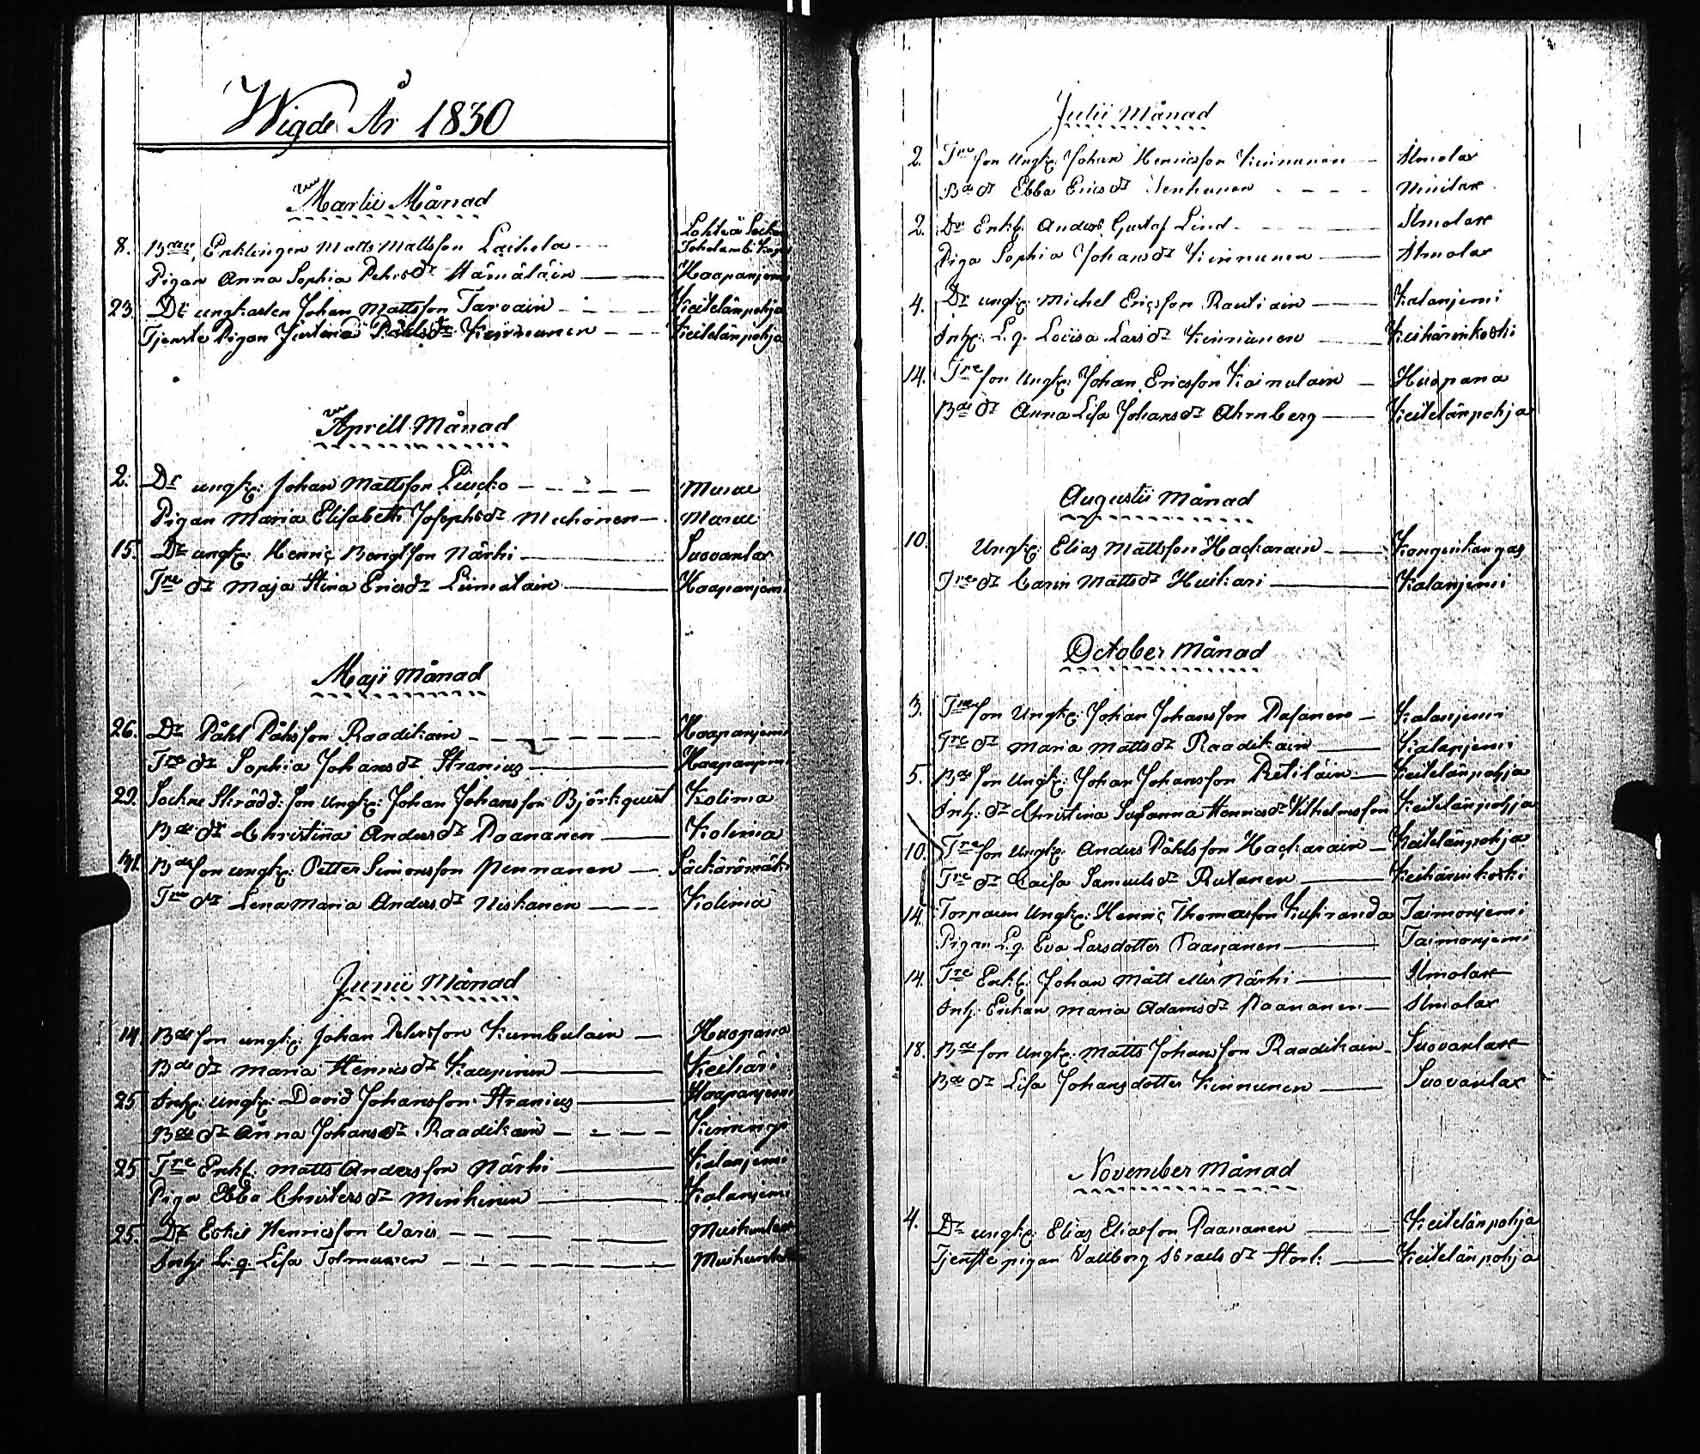 Wigde År 1830
Martii Månad
Lohteå Sockn
8. Bden Enklingen Matts Mattsson Laihola Toholambi Kapel
Pigan Anna Sophia Pehrsdr Hämäläin Haapanjemi
23. Dr ungkarlen Johan Mattsson Tarvain Keitelänpohja
Tjenste Pigan Justina Påhlsdr Kinnunen Keitelänpohja
Aprill Månad
2. Dr ungk: Johan Mattsson Muroe
Pigan Maria Elisabeth Josephsdr Muhonen Muroe
15. Dr ungk: Henric Bengtsson Närhi Suovanlax
Tre dr Maja Stina Ericsdr Liimatain Haapanjemi
Maji Månad
26. Dr Påhl Påhlsson Raadikain Haapanjemi
Tre dr Sophia Johansdr Stranius Haapanjemi
29. Sockne Skrädd: son ungk: Johan Johansson Björkqvist Kolima
Bde dr Christina Andersdr Paananen Kolima
31. Bde son ungk: Petter Simonsson Pennanen Säckärämäki
Tre dr Lena Maria Andersdr Niskanen Kolima
Junii Månad
14. Bde son ungk: Johan Petersson Kumbulain Huopana
Bde dr Maria Henricsdr Kaupinen Keihäri
25 Inh: ungk: David Johansson Stranius Haapanjemi
Bde dr Anna Johansdr Raadikain
25 Tre Enkl: Matts Andersson Närhi Kalanjemi
Piga Ebba Christersdr Minkinen Kalanjemi
25. Dr Henricsson Waris
Inh: L: q. Lisa Tolmunen
Julii Månad
2. Tre son ungk: Johan Henricsson Kinnunen Ilmolax
Bde dr Ebba Ericsdr
2. Dr Enkl: Anders Gustaf Lind Ilmolax
Piga Sophia Johansdr Kinnunen Ilmolax
4. Dr ungk: Michel Ericsson Rautiain Kalanjemi
Inh: L. q. Lovisa Larsdr Kinnunen Keihärinkoski
14. Tre son Ungk: Johan Ericsson Kainulain Huopana
Bde dr Anna Lisa Johansdr Ahrnberg Keitelänpohja
Augustii Månad
10. Ungk: Elias Mattsson Hackarain Kangenkangas
Tre dr Carin Mattsdr Huskari Kalanjemi
October Månad
3. Tre son Ungk: Johan Johansson Pasanen Kalanjemi
Tre dr Maria Mattsdr Raadikain Kalanjemi
5. Bde son Ungk: Johan Johansson Retiläin Keitelänpohja
Inh: dr Christina Susanna Henricsdr Vilhelmsson Keitelänpohja
10. Tre son Ungk: Anders Påhlsson Hackarain Keitelänpohja
Tre dr Caisa Samuelsdr Rutanen Keihärinkoski
14. Torparen Ungk: Henric Thomasson Kusiranda Taimonjemi
Pigan L. q. Eva Larsdotter Paanjänen Taimonjemi
14. Tre Enkl: Johan Matt eller Närhi Ilmolax
Inh: Enkan Maria Adamsdr Paananen Ilmolax
18. Bde son Ungk: Matts Johansson Raadikain Suovanlax
Bde dr Lisa Johansdotter Kinnunen Suovanlax
November Månad
4. Dr ungk: Elias Eliasson Paananen Keitelänpohja
Tjenste pigan Vallborg Israelsdr Storb: Keitelänpohja